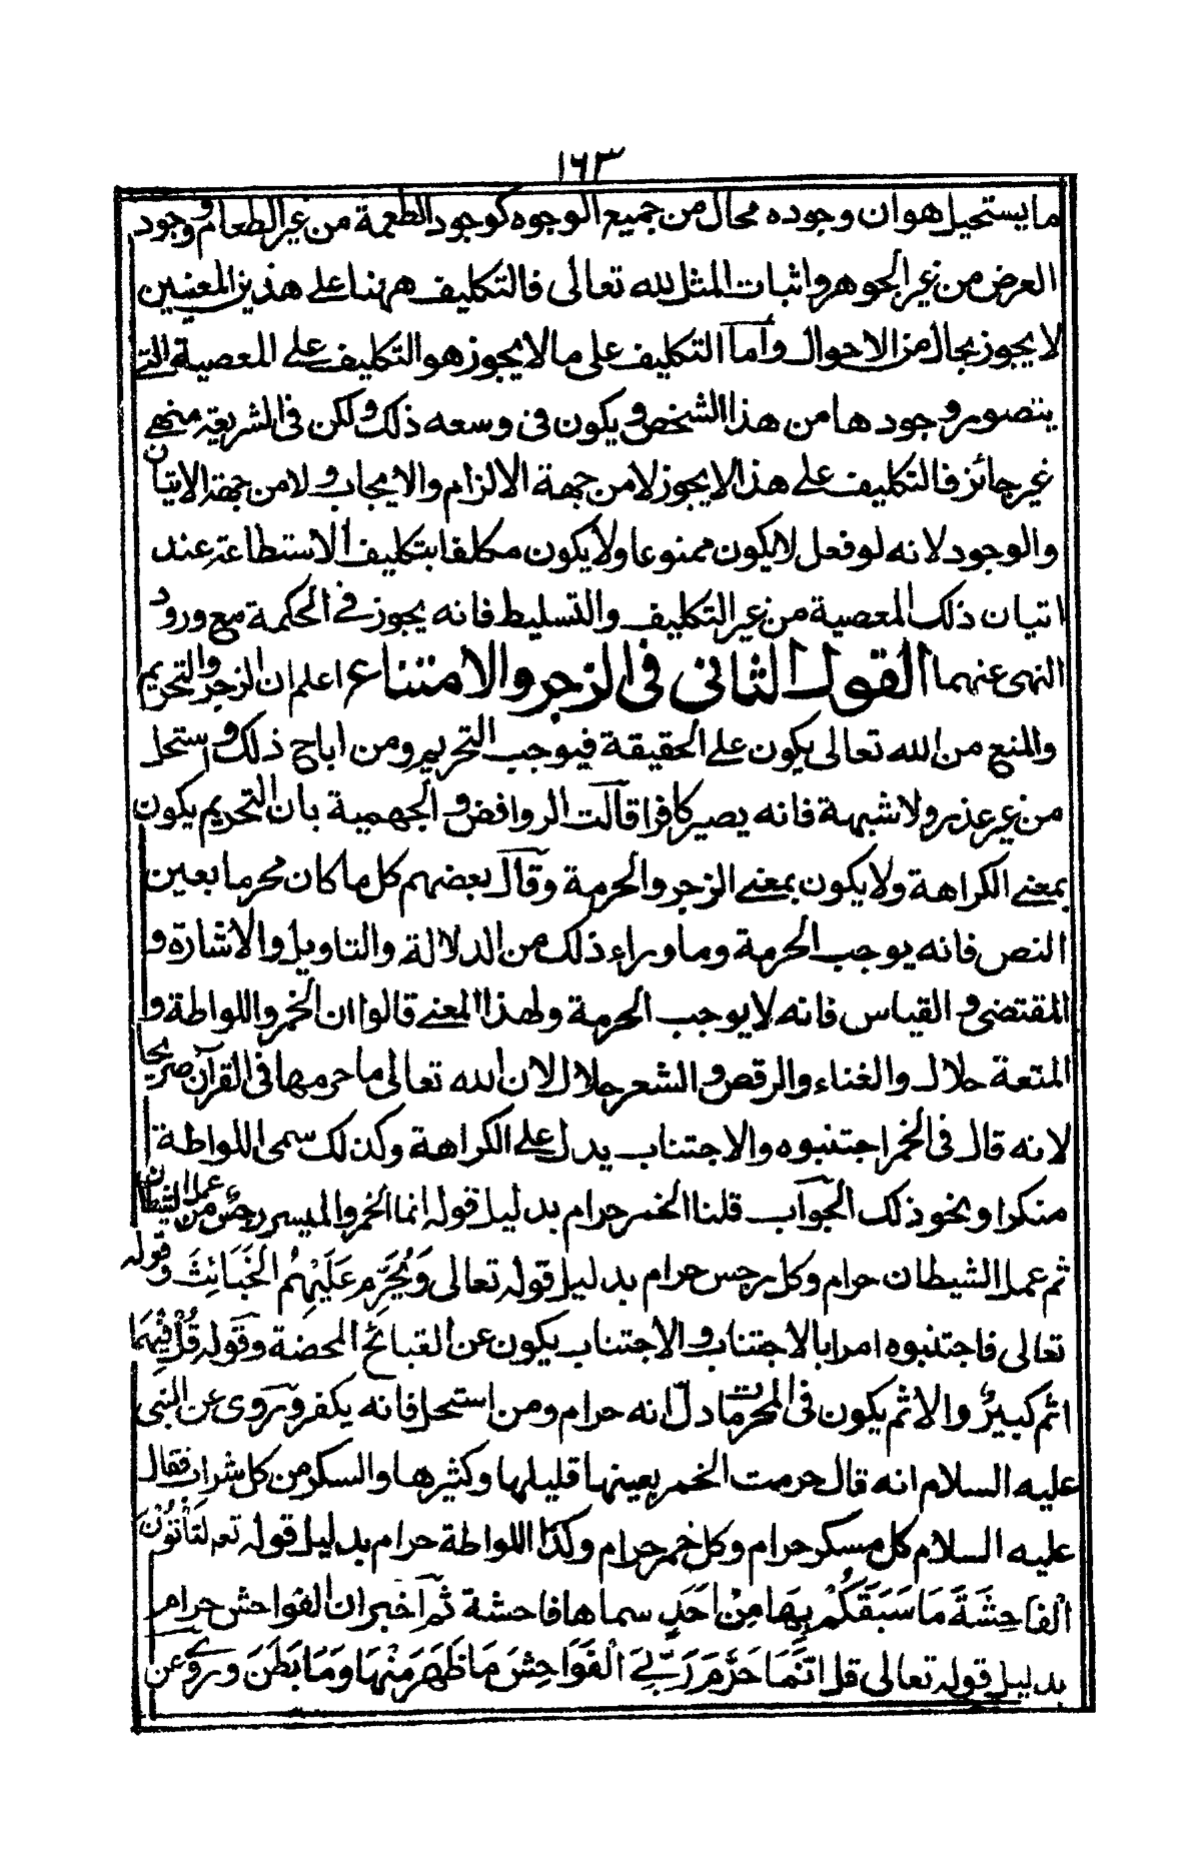 ١٦٣
ما يستحيل هو ان وجوده محال من جميع الوجوه كوجود الطعمة من غير الطعام ووجود
العرض من غير الجوهر واثبات المثل لله تعالى فالتكليف ههنا على هذين المعنيين
لا يجوز بحال من الاحوال واما التكليف على ما لا يجوز هو التكليف على المعصية التى
يتصور وجودها من هذا الشخص ويكون فى وسعه ذلك ولكن فى الشريعة منهى
غير جائز فالتكليف على هذا لا يجوز لا من جهة الالزام والايجاب ولا من جهة الاتيان
والوجود لانه لو فعل لا يكون ممنوعا ولا يكون مكلفا بتكليف الاستطاعة عند
اتيان ذلك المعصية من غير التكليف والتسليط فانه يجوز فى الحكمة مع ورود
النهى عنهما القول الثانى فى الزجر والامتناع اعلم ان الزجر والتحريم
والمنع من الله تعالى يكون على الحقيقة فيوجب التحريم ومن اباح ذلك واستحل
من غير عذر ولا شبهة فانه يصير كافرا قالت الروافض والجهمية بان التحريم يكون
بمعنى الكراهة ولا يكون بمعنى الزجر والحرمة وقال بعضهم كل ما كان محرما بعين
النص فانه يوجب الحرمة وما وراء ذلك من الدلالة والتاويل والاشارة و
المقتضى والقياس فانه لا يوجب الحرمة ولهذا المعنى قالوا ان الخمر واللواطة و
المتعة حلال والغناء والرقص والشعر حلال لان الله تعالى ما حرمها فى القرآن صريحا
لانه قال فى الخمر اجتنبوه والاجتناب يدل على الكراهة وكذلك سمى اللواطة
منكرا ونحو ذلك الجواب قلنا الخمر حرام بدليل قوله انما الخمر والميسر رجس من عمل الشيطان
ثم عمل الشيطان حرام وكل رجس حرام بدليل قوله تعالى وَيُحَرِّم عَلَيْهِمُ الْخَبَائِثَ وقوله
تعالى فاجتنبوه امر بالاجتناب والاجتناب يكون عن القبائح المحضة وقوله قُلْ فِيْهِمَا
اثم كبيرٌ والاثم يكون فى المحرمات دلّ انه حرام ومن استحل فانه يكفر وروى عن النبى
عليه السلام انه قال حرمت الخمر بعينها قليلها وكثيرها والسكر من كل شراب فقال
عليه السلام كل مسكر حرام وكل خمر حرام وكذا اللواطة حرام بدليل قوله تعه لَتَأْتُوْنَ
الْفَاحِشَةَ مَا سَبَقَكُمْ بِهَا مِنْ اَحَدٍ سماها فاحشة ثم اخبر ان الفواحش حرام
بدليل قوله تعالى قل اِنَّمَا حَرَّمَ رَبِّىَ الْفَوَاحِشَ مَا ظَهَرَ مِنْهَا وَمَا بَطَنَ وروى عن